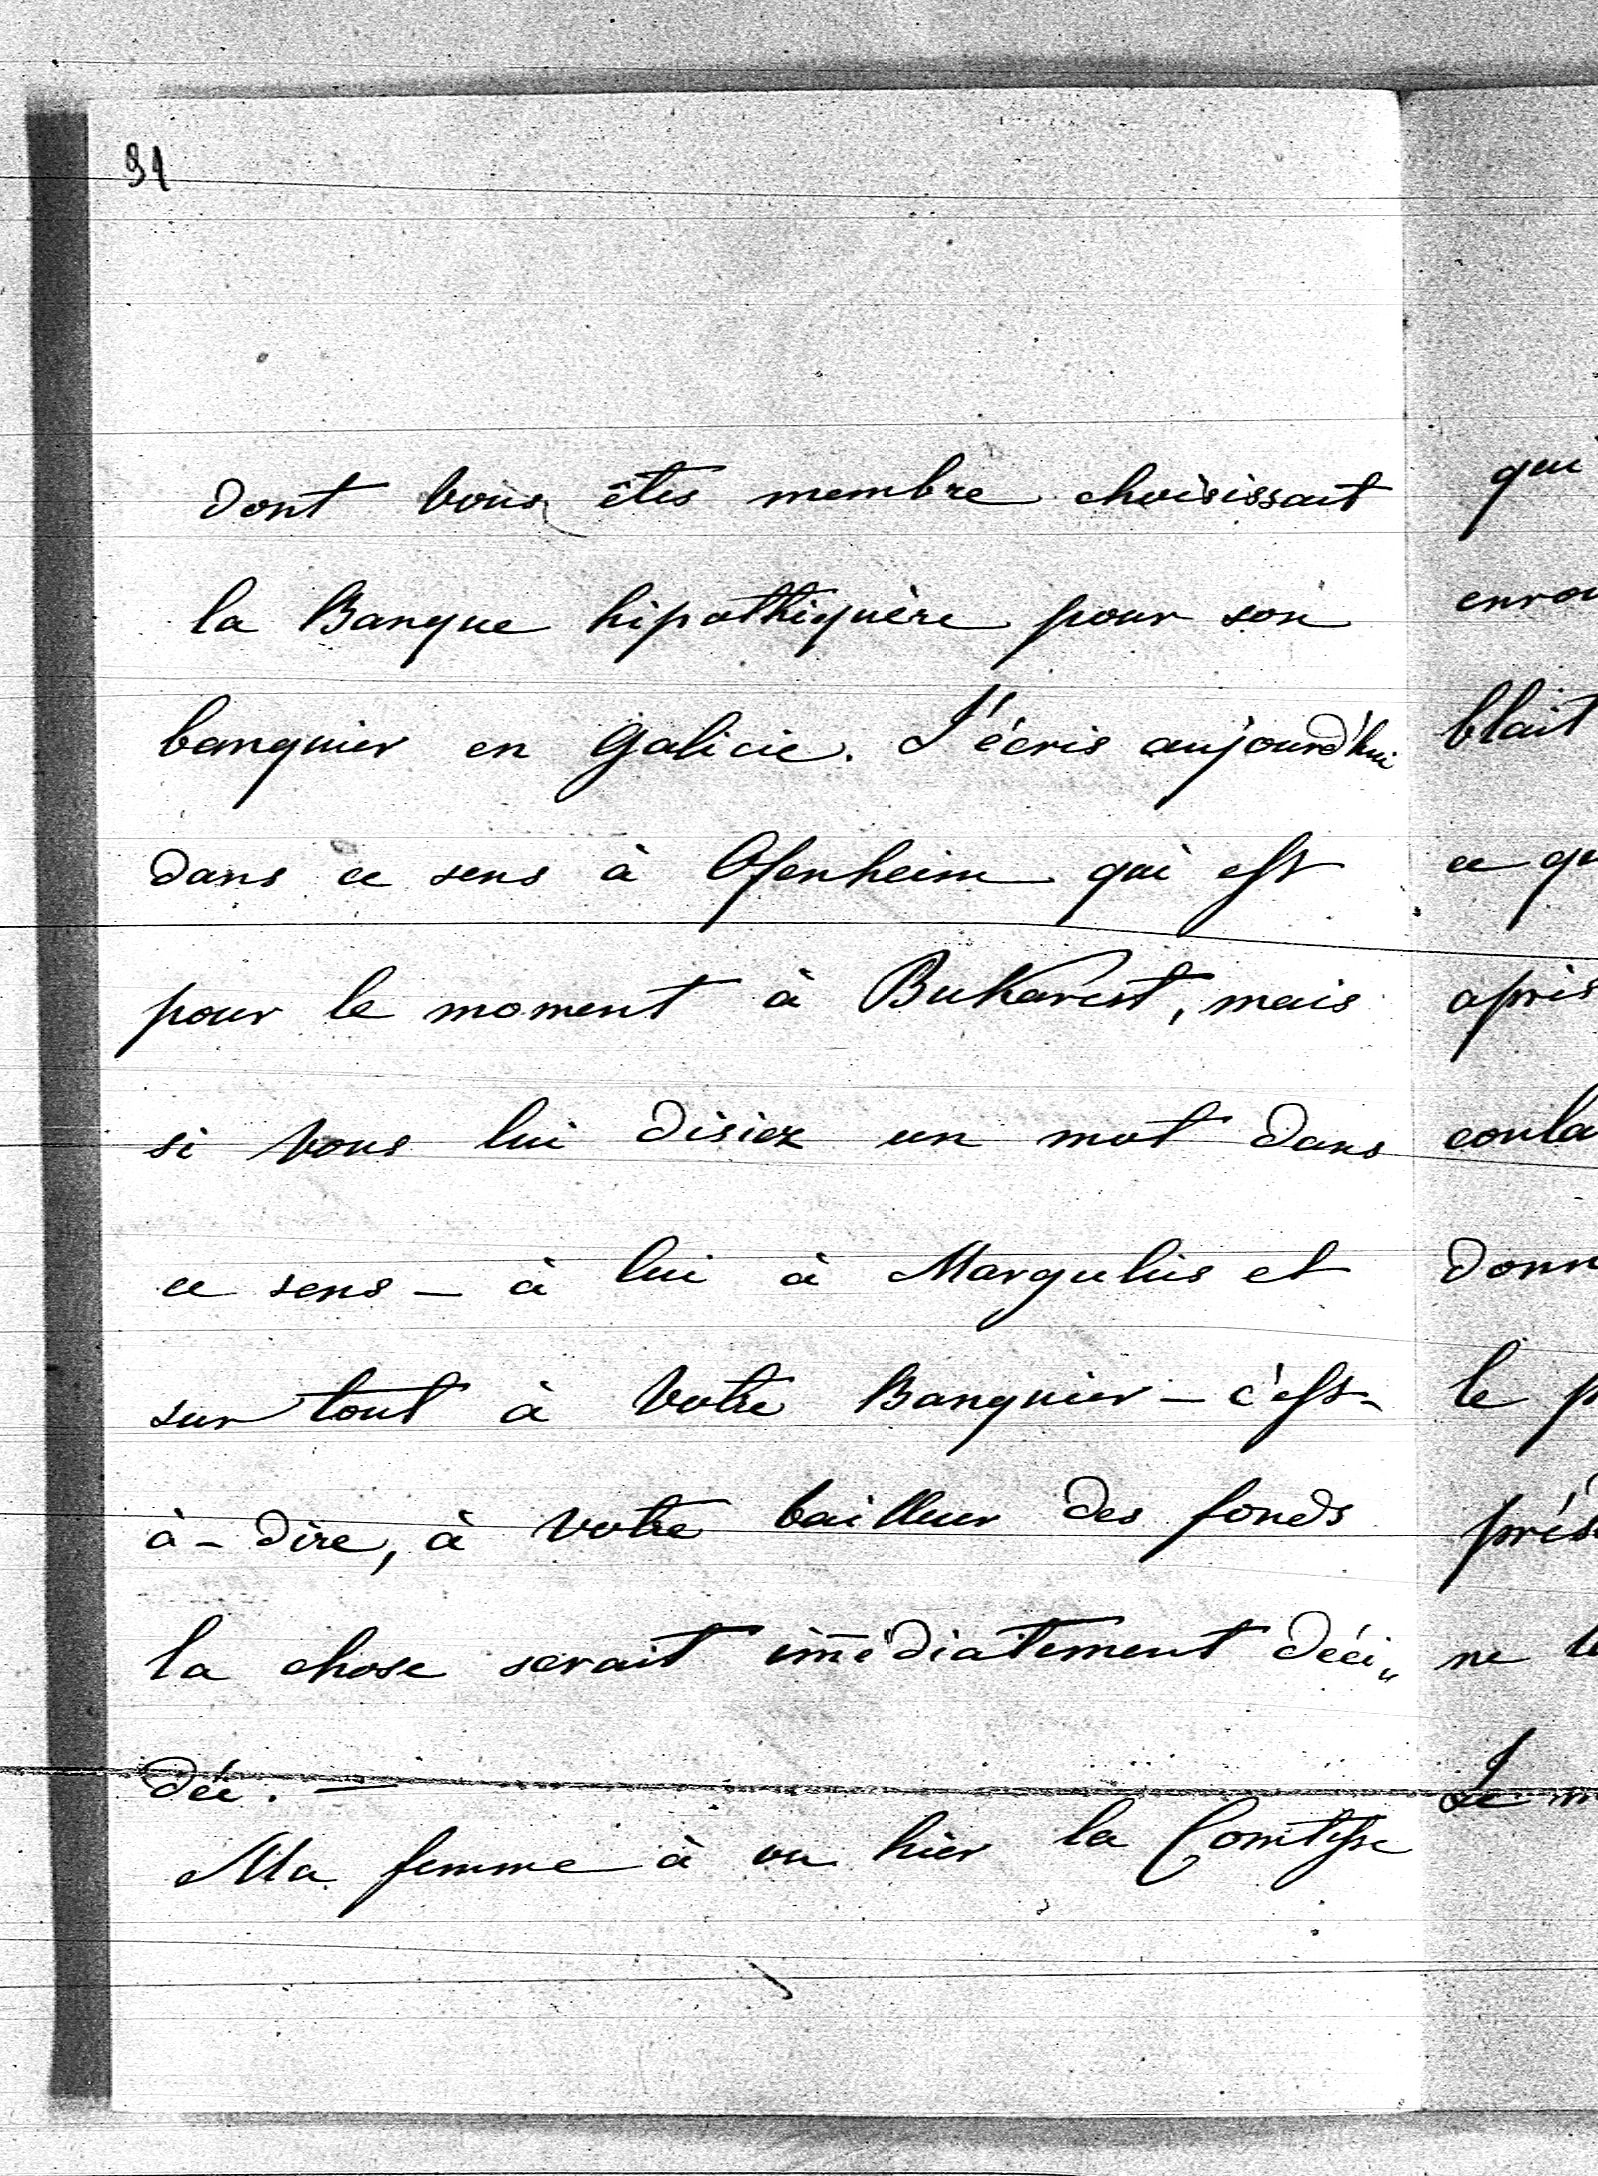 91
dont vous êtes membre choisissait
la Banque hipothiquère pour son
banquier en Galicie. J'écris aujourd'hui
dans ce sens à Ofenheim qui est
pour le moment à Bukarest, mais
si vous lui disiez un mot dans
ce sens – à lui à Margulius et
sur tout à votre Banquier – c'est-
à-dire, à votre bailleur des fonds
la chose serait im̄édiatement déci„
dée. –
Ma femme à vu hier la Comtesse
qui
blait
ce qu
après
donn
le p
prés